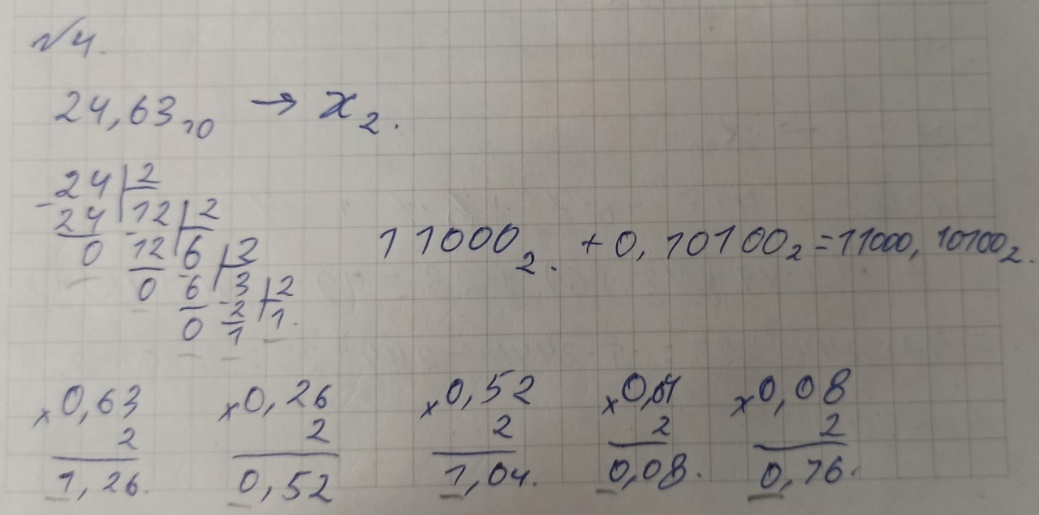 №4.
24,63₁₀ → x₂.
24 | 2
24 | 12 | 2
0 12 | 6 | 2
0 6 | 3 | 2
0 2 | 1.
1
11000₂. + 0,10100₂ = 11000,10100₂.
×0,63 ×0,26 ×0,52 ×0,04 ×0,08
2 2 2 2 2
1,26. 0,52 1,04. 0,08. 0,16.